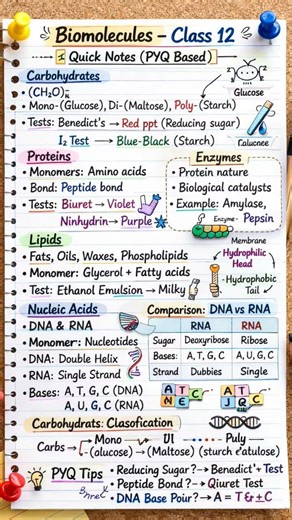 Biomolecules – Class 12
Quick Notes (PYQ Based)
Carbohydrates
• (CH2O)n
• Mono-(Glucose), Di-(Maltose), Poly-(Starch)
Glucose
• Tests: Benedict's → Red ppt (Reducing sugar)
I2 Test → Blue-Black (Starch)
Proteins
• Monomers: Amino acids
• Bond: Peptide bond
• Tests: Biuret → Violet
Ninhydrin → Purple
Enzymes
• Protein nature
• Biological catalysts
• Example: Amylase,
Enzyme- Pepsin
Lipids
• Fats, Oils, Waxes, Phospholipids
• Monomer: Glycerol + Fatty acids
• Test: Ethanol Emulsion → Milky
Membrane
Hydrophilic
Head
• Hydrophobic
Tail
Nucleic Acids
• DNA & RNA
• Monomer: Nucleotides
• DNA: Double Helix
• RNA: Single Strand
• Bases: A, T, G, C (DNA)
A, U, G, C (RNA)
Comparison: DNA vs RNA
RNA RNA
Sugar Deoxyribose Ribose
Bases: A, T, G, C A, U, G, C
Strand Dubbies Single
Carbohydrats: Clasofication
Carbs → Mono → UI → Puly
(Maltose)
PYQ Tips
• Reducing Sugar? → Benedict'+ Test
• Peptide Bond? → Qiuret Test
• DNA Base Pour? → A =